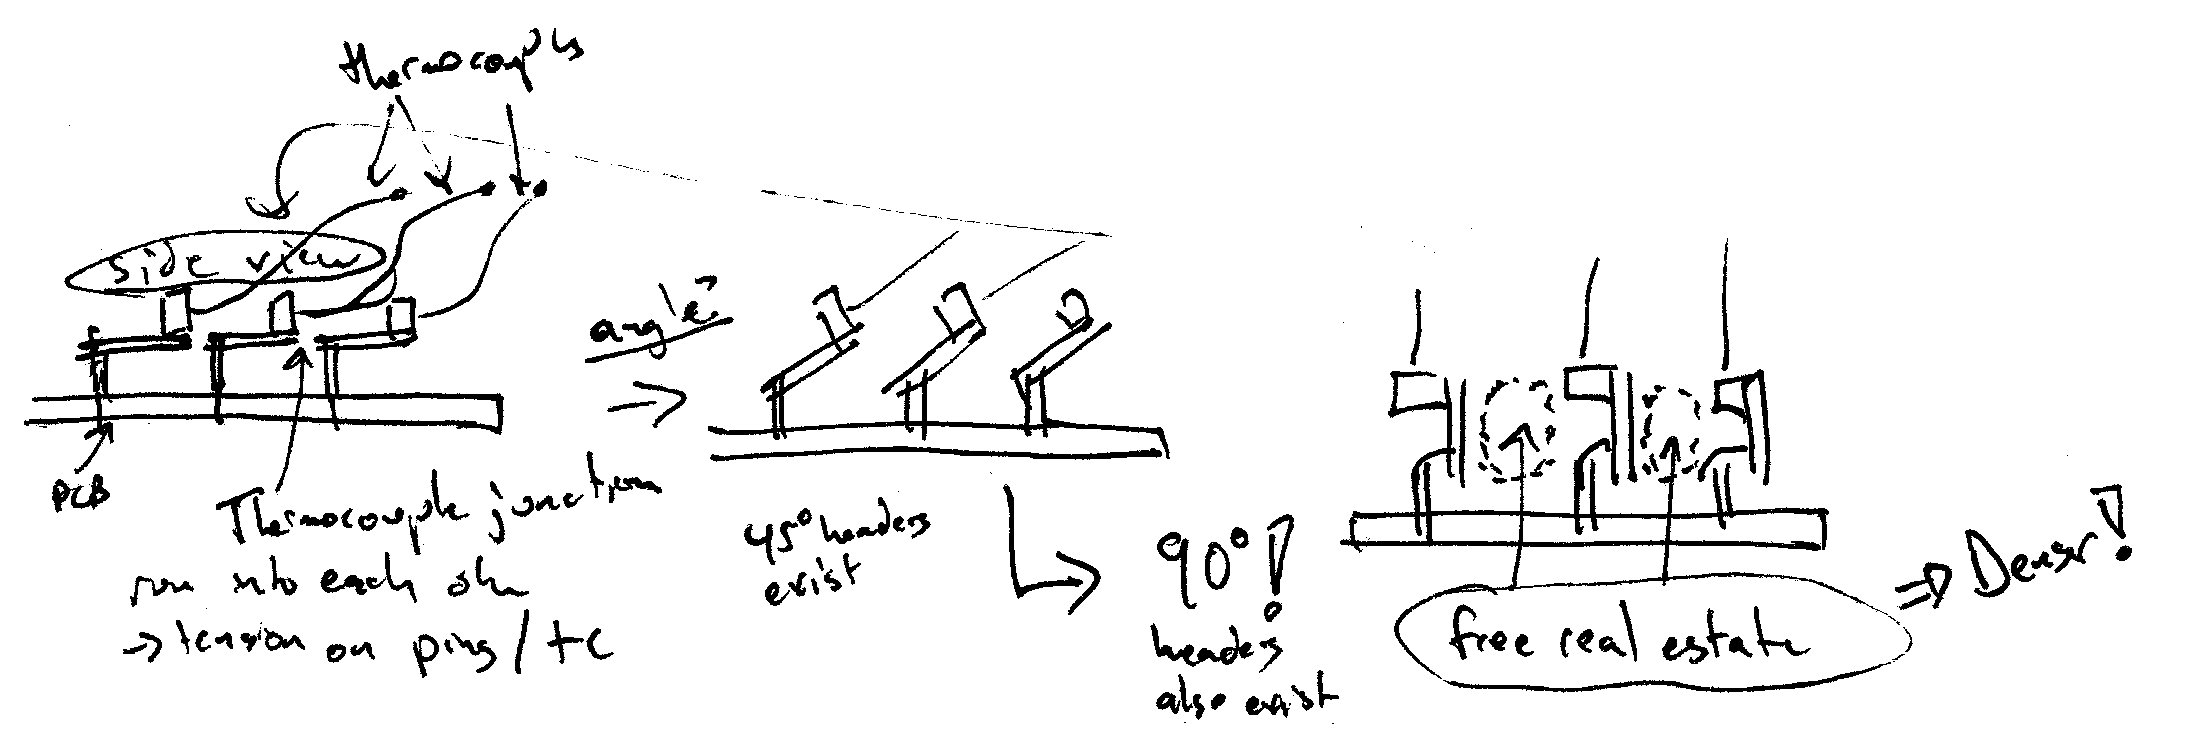 thermocouples
side view
PCB
Thermocouple junction
run into each other
→ tension on pins / tc
angle?
45° headers
exist
90°!
headers
also exist
free real estate
⇒ Denser!